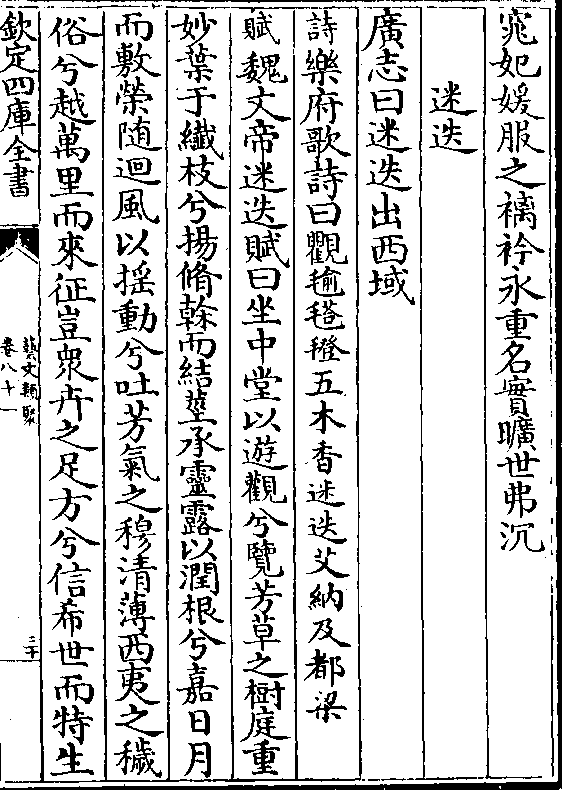 窕妃媛服之褵衿永重名實曠世弗沉
迷迭
廣志曰迷迭出西域
詩樂府歌詩曰觀毺㲪㲪五木香迷迭艾納及都梁
賦魏文帝迷迭賦曰坐中堂以遊觀兮覽芳草之樹庭重
妙葉于纖枝兮揚脩榦而結莖承靈露以潤根兮嘉日月
而敷榮隨迴風以揺動兮吐芳氣之穆清薄西夷之穢
俗兮越萬里而來征豈衆卉之足方兮信希世而特生
欽定四庫全書
藝文類聚
卷八十一
三十